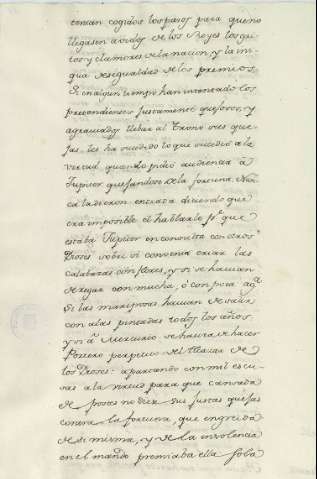 tenian cogidos los pasos para que no
llegasen a oidos de los Reyes los gri
tos y clamores de la nacion, y la ini
qua desigualdad de los premios.
Si en algun tiempo han intentado los
pretendientes justamente quejosos, y
agraviados llebar al Trono sus que
jas, les ha sucedido lo que sucedió a la
virtud quando pidió audiencia à
Jupiter quejandose de la fortuna. Nun
ca la dieron entrada diciendo que
era imposible el hablarle p.r que
estaba Jupiter en consulta con otros
Dioses sobre si convenia criar las
calabazas con flores, y si se havian
de regar con mucha, ò con poca ag.a
Si las mariposas havian de salir
con alas pintadas todos los años
y si à Mercurio se havia de hacer
Portero perpetuo del Palacio de
los Dioses: apartando con mil escu
sas a la virtud para que cansada
de postes no diera sus justas quejas
contra la fortuna, que engreida
de si misma, y de la insolencia
en el mando premiaba ella sola